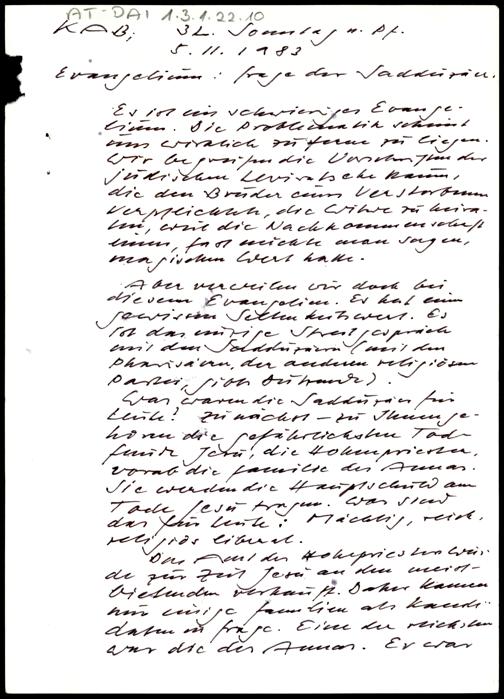 AT-DAI 1.3.1.22.10
KAB, 32. Sonntag n. Pf.
5. 11. 1983
Evangelium: Frage der Sadduzäer.
Es ist ein schwieriges Evange-
lium. Die Problematik scheint
uns wirklich zu ferne zu liegen.
Wir begreifen die Vorschriften der
jüdischen Leviratsehe kaum,
die den Bruder eines Verstorbenen
verpflichtete, die Witwe zu heira-
ten, weil die Nachkommenschaft
einen, fast möchte man sagen,
magischen Wert hatte.
Aber verweilen wir doch bei
diesem Evangelium. Es hat einen
gewissen Seltenheitswert. Es
ist das einzige Streitgespräch
mit den Sadduzäern (mit den
Pharisäern, der anderen religiösen
Partei, gibt es Dutzende).
Was waren die Sadduzäer für
Leute? Zunächst – zu Ihnen ge-
hören die gefährlichsten Tod-
feinde Jesu, die Hohenpriester,
vorab die Familie des Annas.
Sie werden die Hauptschuld am
Tode Jesu tragen. Was sind
das für Leute? Mächtig, reich,
religiös liberal.
Das Amt der Hohepriesterwür-
de zur Zeit Jesu an den meist-
bietenden verkauft. Daher kamen
nur einige Familien als Kandi-
daten in Frage. Eine der reichsten
war die des Annas. Er war